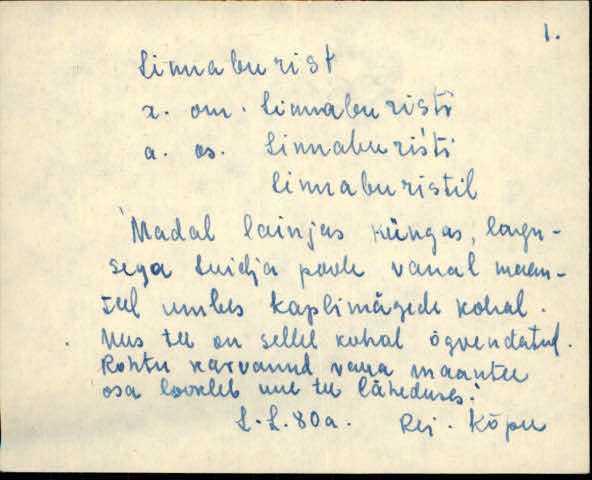 1.
Linnaburist
x. om. linnaburisti
a. os. Linnaburisti
linnaburistil
Madal lainjas küngas, lagu-
sega Luidja poole vanal maan-
teel umbes kaplimägede kohal.
Uus tee on sellel kohal õgvendatud.
Rohtu karvanud vana maantee
osa lookleb uue tee läheduses.
L.L. 80a. Rei. Kõpu